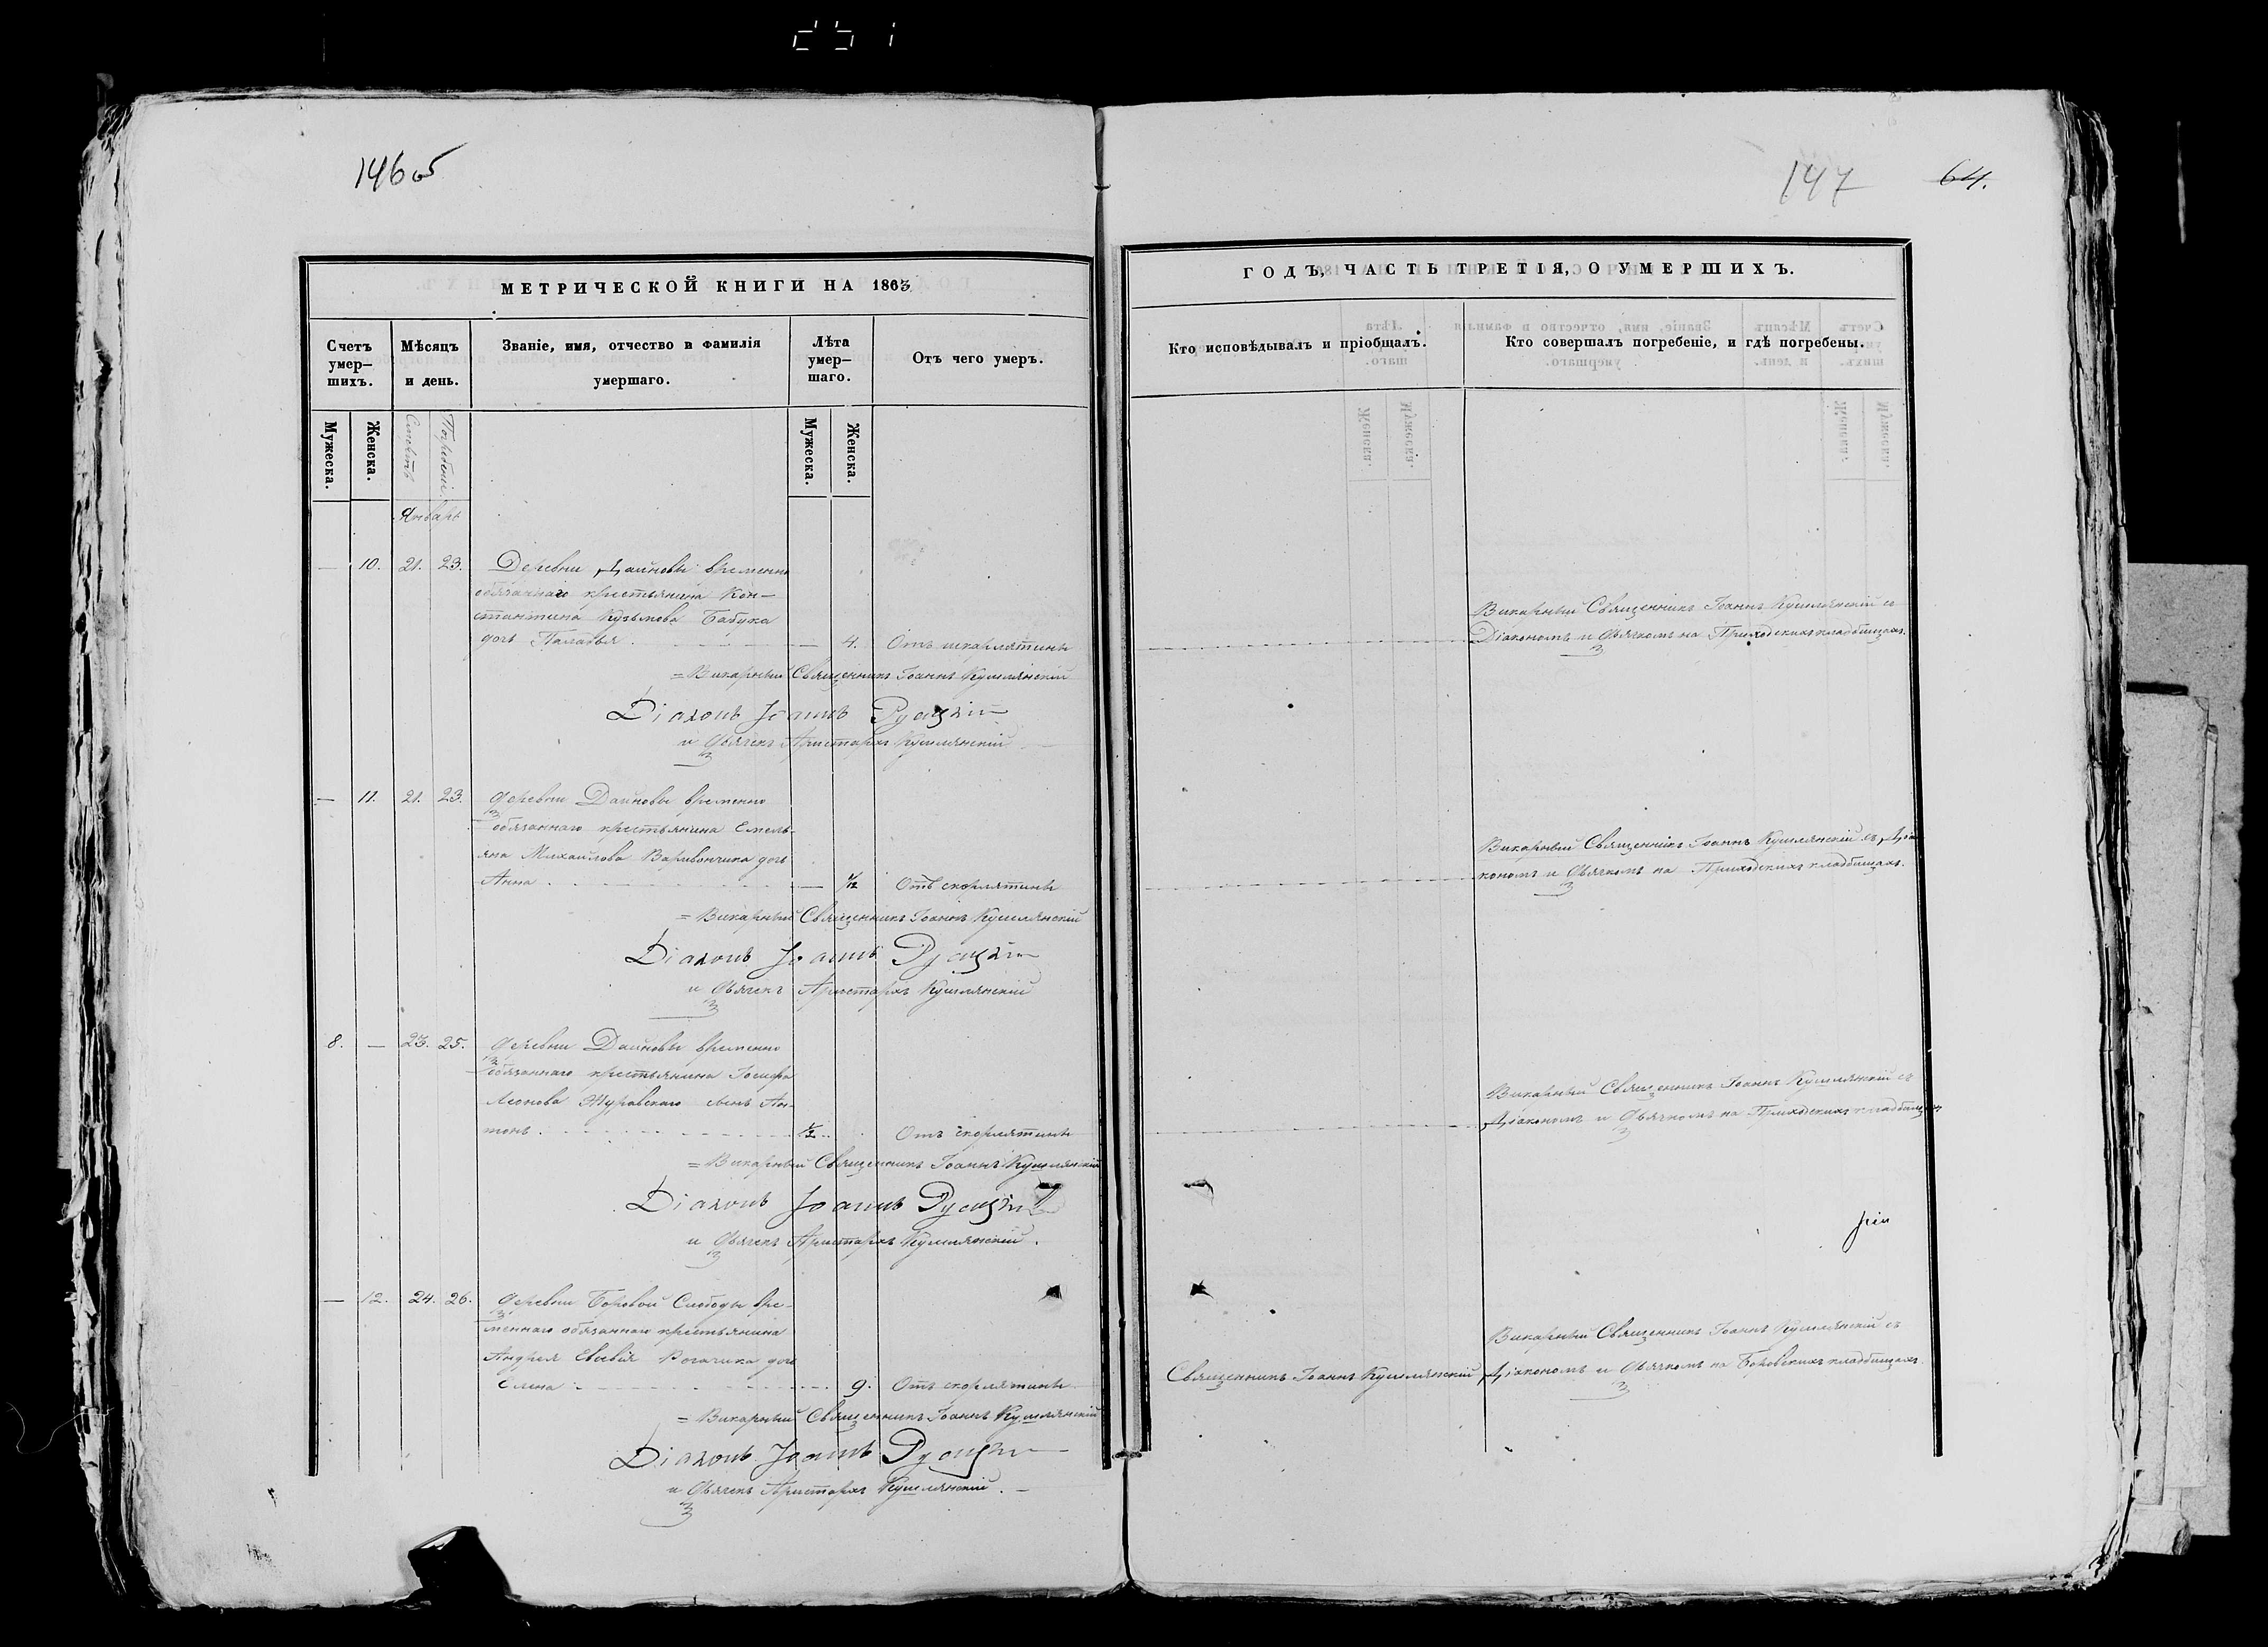 146 об
МЕТРИЧЕСКОЙ КНИГИ НА 1863
Счетъ умер–шихъ.
Мѣсяцъ и день.
Званіе, имя, отчество и фамилія умершаго.
Лѣта умер–шаго.
Отъ чего умеръ.
Мужеска.
Женска.
Смерти
Погребенія
Мужеска.
Женска.
Январь
— 10. 21. 23. Деревни Дайновы временно
обязаннаго крестьянина Кон–
стантина Кузьмова Бабука
дочь Палагія — 4. Отъ шкарлятины
= Викарный Священникъ Іоаннъ Кушлянскій
Діаконъ Іоаннъ
и Дьячекъ Аристархъ Кушлянскій
— 11. 21. 23. Деревни Дайновы временно
обязаннаго крестьянина Емель–
яна Михайлова дочь
Анна — 1/12 Отъ скорлятины
= Викарный Священникъ Іоаннъ Кушлянскій
Діаконъ Іоаннъ
и Дьячекъ Аристархъ Кушлянскій
8. — 23. 25. Деревни Дайновы временно
обязаннаго крестьянина Іосифа
Леонова Журавскаго сынъ Ан–
тонъ 1/2 Отъ скорлятины
= Викарный Священникъ Іоаннъ Кушлянскій
Діаконъ Іоаннъ
и Дьячекъ Аристархъ Кушлянскій.
— 12. 24. 26. Деревни Боровой Слободы вре–
меннаго обязаннаго крестьянина
Андрея Евсевія Рогачика дочь
Елена — 9. Отъ скорлятины
= Викарный Священникъ Іоаннъ Кушлянскій
Діаконъ Іоаннъ
и Дьячекъ Аристархъ Кушлянскій.
147 64.
ГОДЪ, ЧАСТЬ ТРЕТІЯ, О УМЕРШИХЪ.
Кто исповѣдывалъ и пріобщалъ.
Кто совершалъ погребеніе, и гдѣ погребены.
Викарный Священникъ Іоаннъ Кушлянскій съ
Діакономъ и Дьячкомъ на Приходскихъ кладбищахъ.
Викарный Священникъ Іоаннъ Кушлянскій съ Діа
кономъ и Дьячкомъ на Приходскихъ кладбищахъ.
Викарный Священникъ Іоаннъ Кушлянскій съ
Діакономъ и Дьячкомъ на Приходскихъ кладбищахъ
Викарный Священникъ Іоаннъ Кушлянскій съ
Священникъ Іоаннъ Кушлянскій Діакономъ и Дьячкомъ на Боровскихъ кладбищахъ.